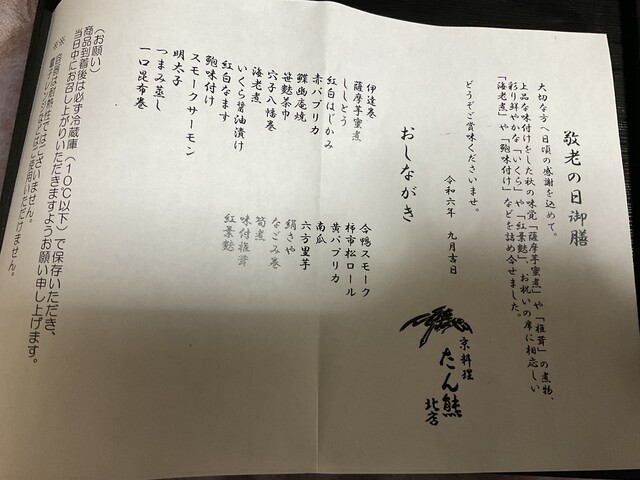 敬老の日御膳
大切な方へ日頃の感謝を込めて。
上品な味付けをした秋の味覚「薩摩芋蜜煮」や「椎茸」の煮物、
彩り鮮やかな「いくら」や「紅葉麩」、お祝いの席に相応しい
「海老煮」や「鮑味付け」などを詰め合せました。
どうぞご賞味くださいませ。
令和六年 九月吉日
京料理
たん熊
北店
おしながき
伊達巻
薩摩芋蜜煮
ししとう
紅白はじかみ
赤パプリカ
鰈幽庵焼
笹麩茶巾
穴子八幡巻
海老煮
いくら醤油漬け
紅白なます
鮑味付け
スモークサーモン
明太子
つまみ蒸し
一口昆布巻
合鴨スモーク
柿市松ロール
黄パプリカ
南瓜
六方里芋
絹さや
なごみ巻
筍煮
味付椎茸
紅葉麩
(お願い)
商品到着後は必ず冷蔵庫(10℃以下)で保存いただき、
当日中にお召し上がりいただきますようお願い申し上げます。
※ 容器は耐熱性ではございません。
※ 電子レンジなどはご使用いただけません。